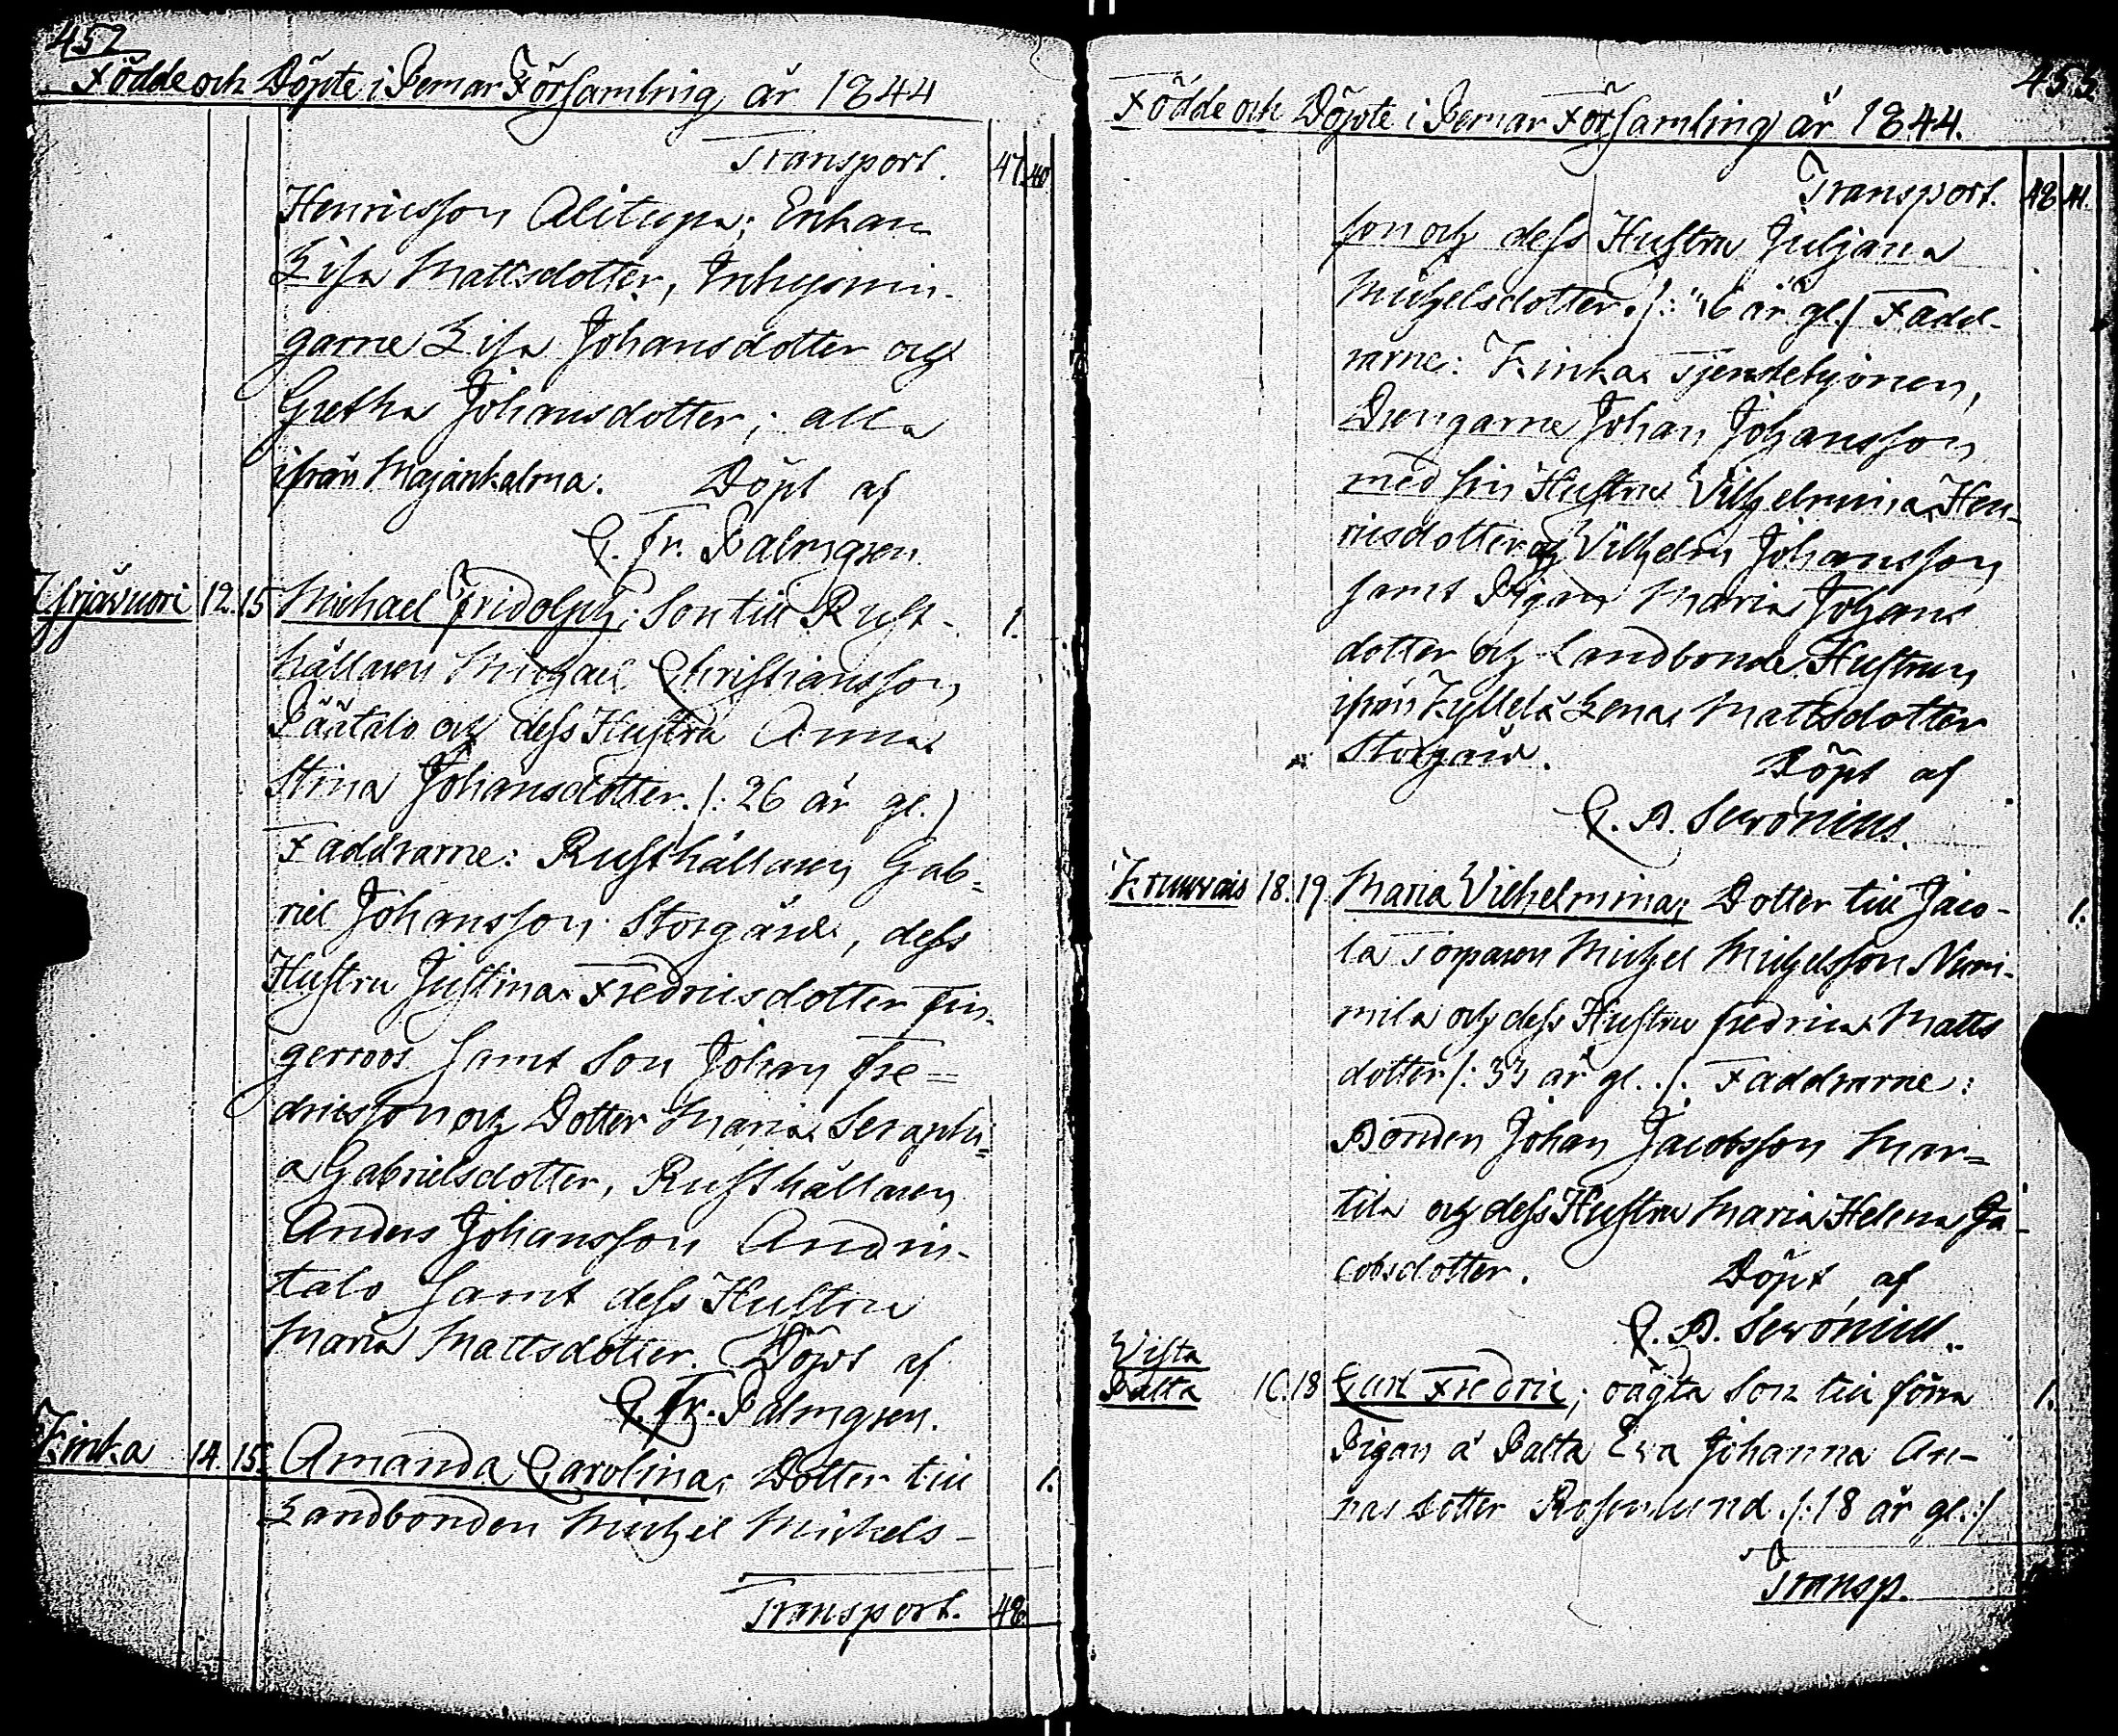 452
Födde och Döpte i Pemar Församling år 1844
Transport. 47. 40
Henricsson Alitupa; Enkan
Lisa Mattsdotter, Inhysnin-
garne Lisa Johansdotter och
Gretha Johansdotter; alla
ifrån Majankalma. Döpt af
C. Fr. Palmgren.
12. 15 Michael Fridolph; Son till Rust- 1.
hållaren Michael Christiansson
Päätalo och dess Hustru Anna
Stina Johansdotter. /: 26 år gl.)
Faddrarne: Rusthållaren Gab-
riel Johansson Storgård, dess
Hustru Justina Fredricsdotter Fin-
gerroos samt Son Johan Fre=
dricsson och Dotter Maria Seraphi=
a Gabrielsdotter, Rusthållaren
Anders Johansson Andin-
talo samt dess Hustru
Maria Mattsdotter. Döpt af
C. Fr. Palmgren.
14. 15. Amanda Carolina; Dotter till 1.
Landbonden Michel Michels-
Transport. 48
453
Födde och Döpte i Pemar Församling år 1844.
Transport. 48 41.
son och dess Hustru Juljana
Michelsdotter. /: 46 år gl./ Fadd-
rarne: Tjenstehjonen,
Drengarne Johan Johansson
med sin Hustru Vilhelmina Hen-
ricsdotter och Vilhelm Johansson
samt Pigan Maria Johans
dotter och Landbonde Hustrun
ifrån Lena Mattsdotter
Storgård. Döpt af
C. B. Serónius.
18. 19. Maria Vilhelmina; Dotter till Jaco- 1.
la Torparen Michel Michelsson Numi-
mila och dess Hustru Fredrica Matts
dotter /: 33 år gl. ./. Faddrarne:
Bonden Johan Jacobsson Mar=
tila och dess Hustru Maria Helena Ja-
cobsdotter. Döpt af
C. B. Serónius.
Vista
Palta 16. 18 Carl Fredric; oägta Son till förra 1.
Pigan å Palta Eva Johanna An-
nas dotter Rosenlund ./: 18 år gl.:/
Transp.